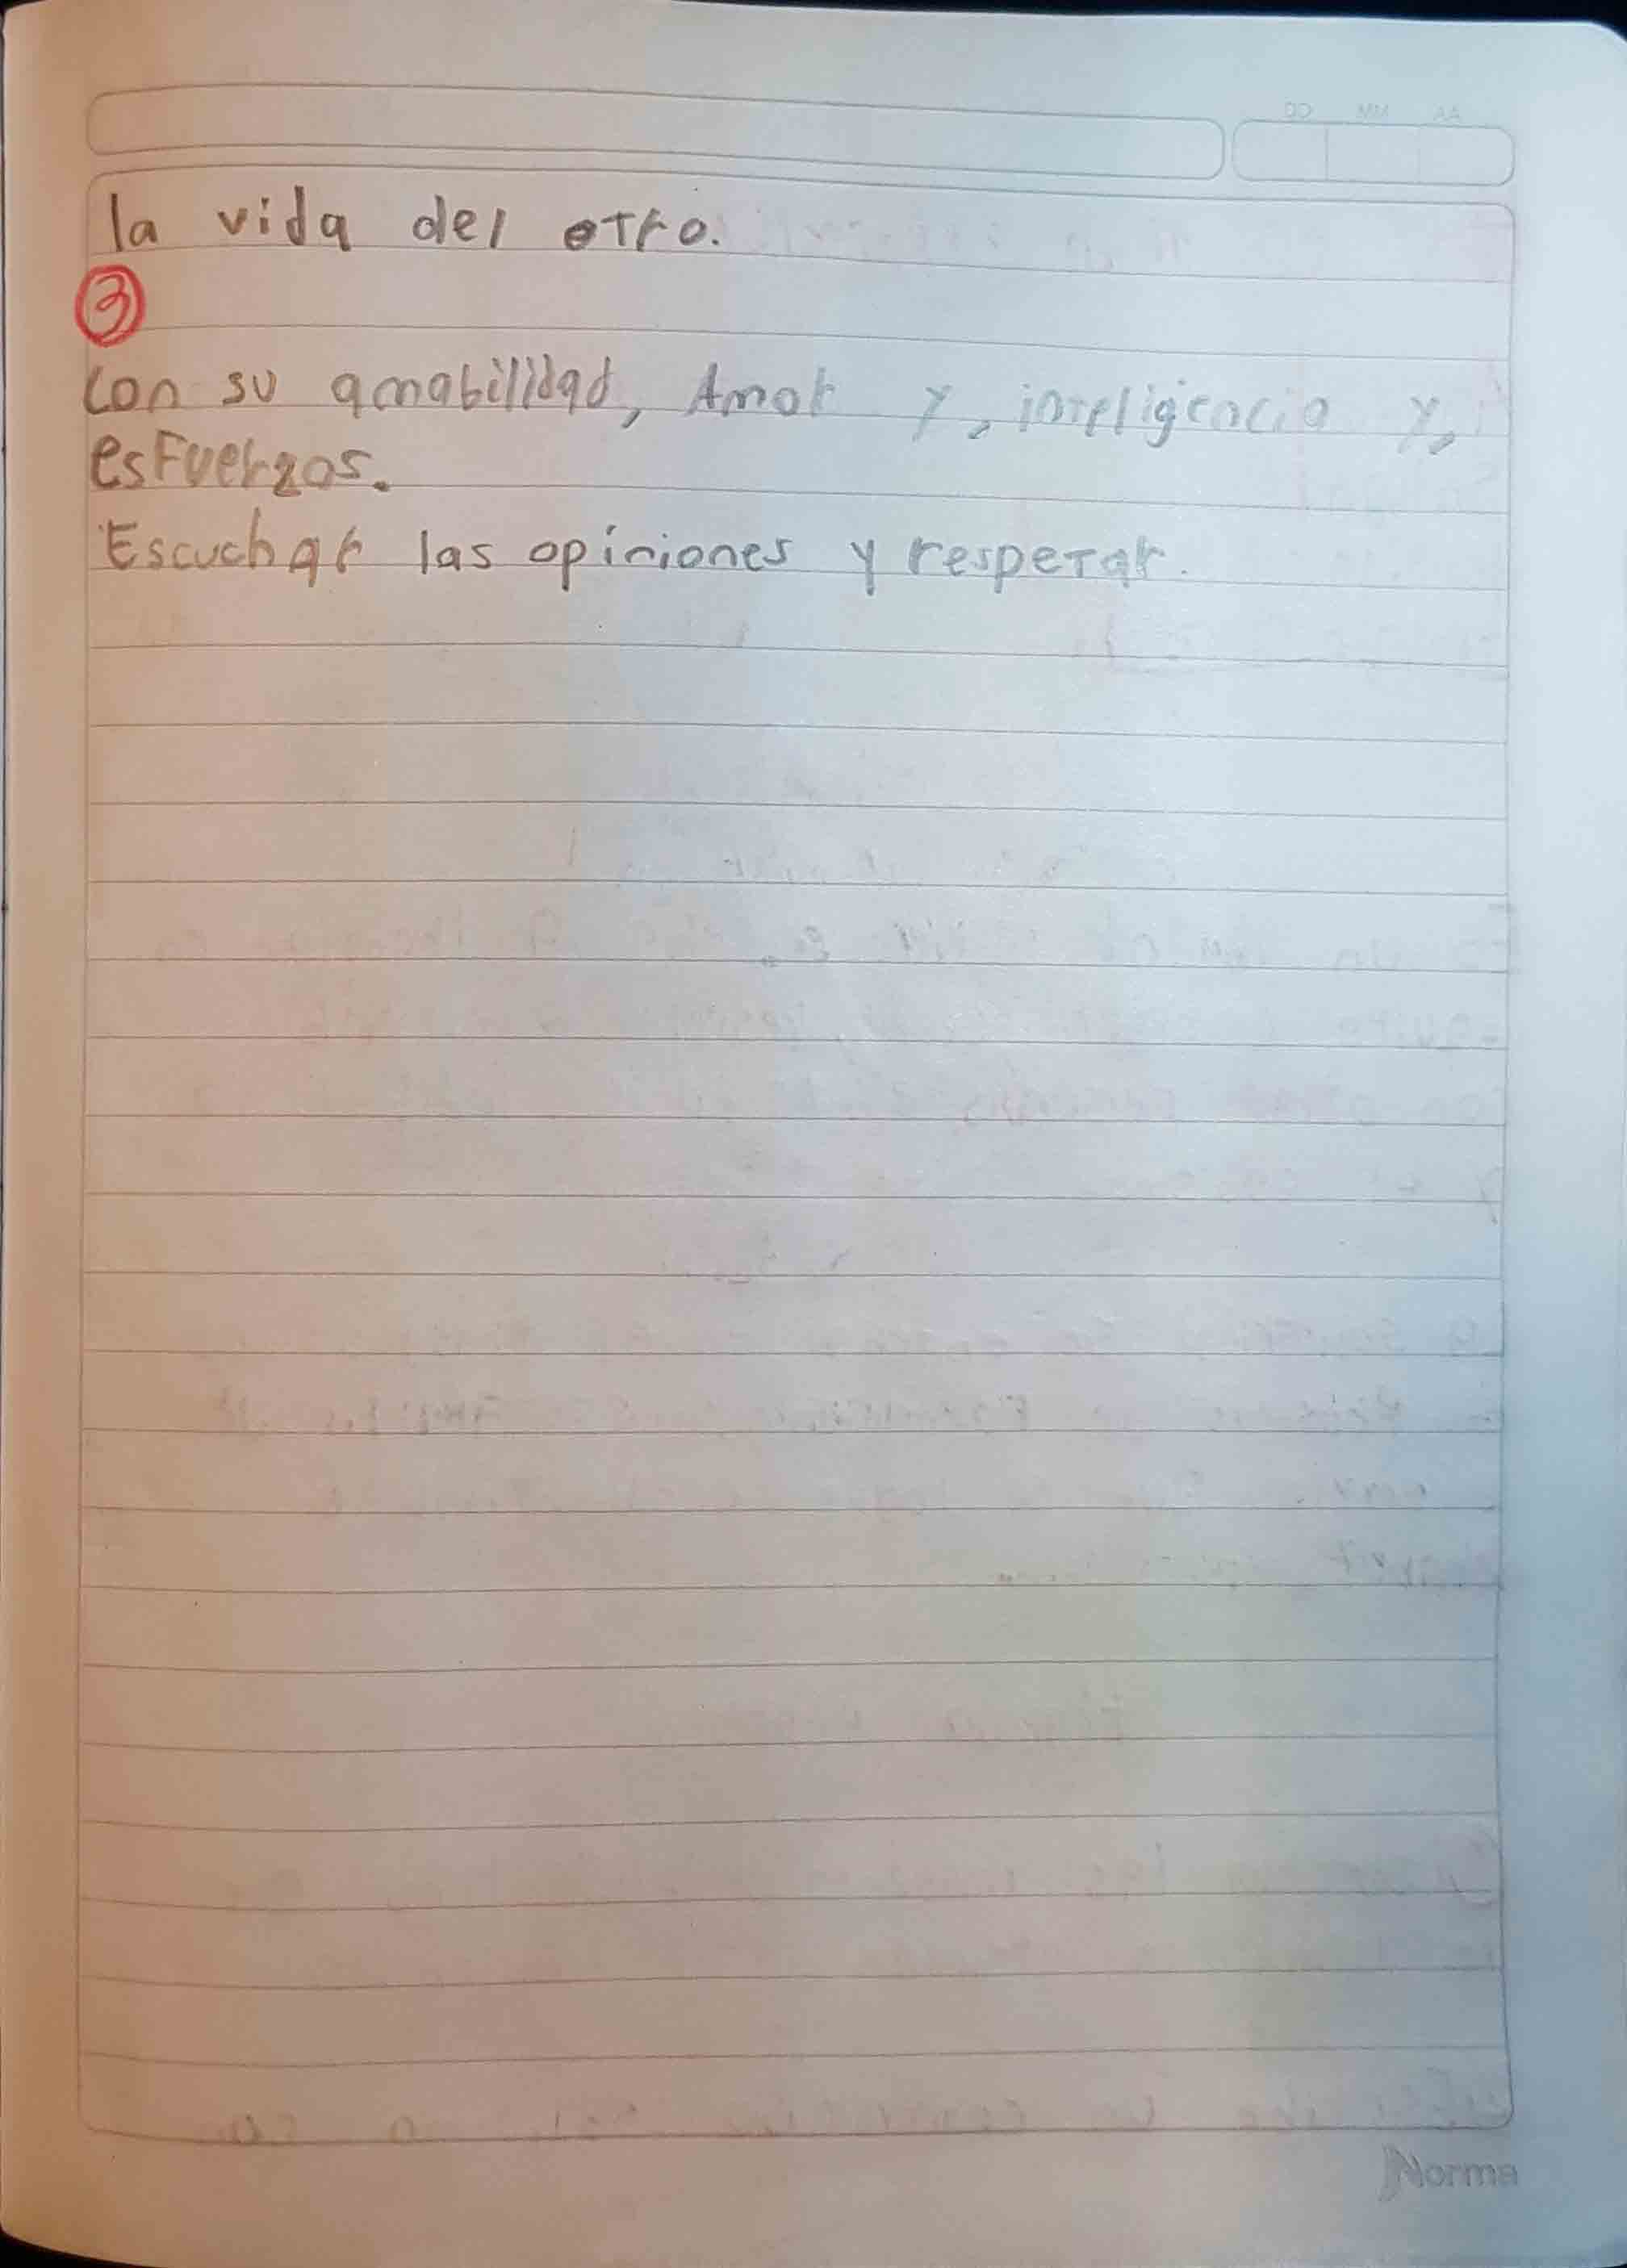 DD MM AA
la vida del otro.
3
Con su amabilidad, Amor y, inteligencia y,
esfuerzos.
Escuchar las opiniones y respetar.
Norma